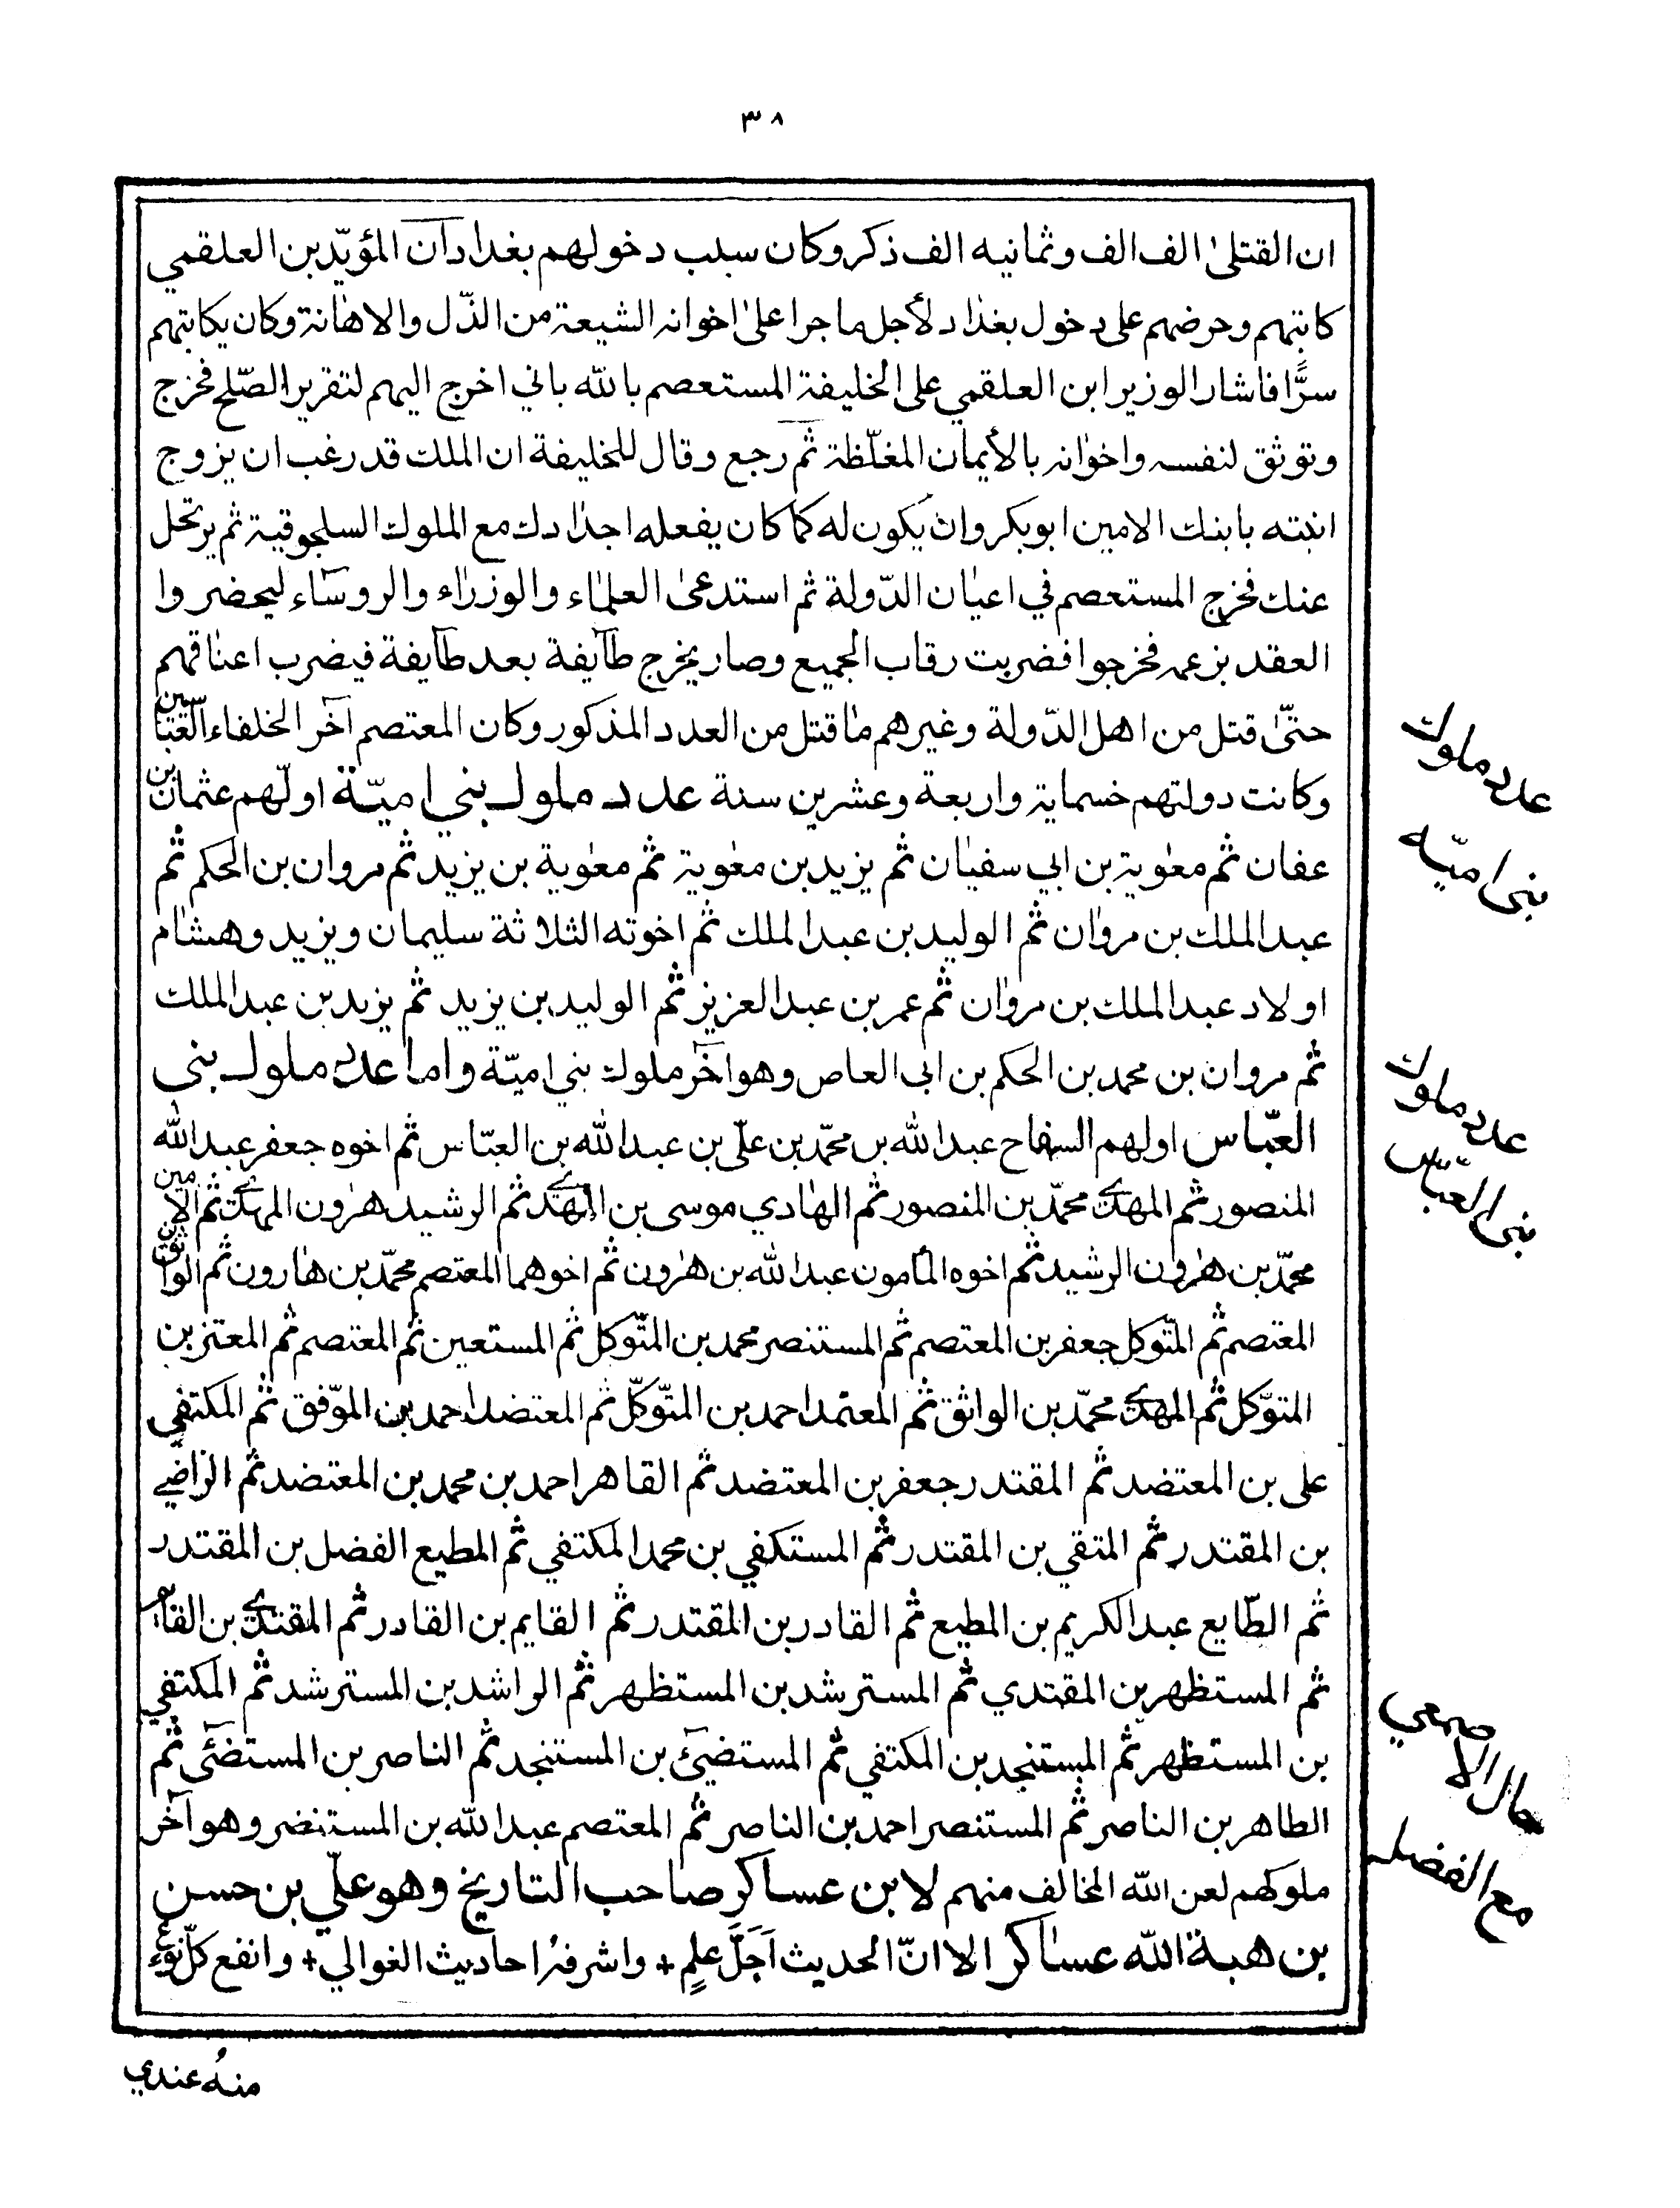 ٣٨
ان القتلىٰ الف الف وثمانيه الف ذكر وكان سبب دخولهم بغداد آن المؤيّد بن العلقمي
كاتبهم وحرضهم على دخول بغداد لأجل ما جرا علىٰ اخوانه الشيعة من الذّل والاهانة وكان يكاتبهم
سرًّا فاشار الوزير ابن العلقمي على الخليفة المستعصم بالله باني اخرج اليهم لتقرير الصّلح فخرج
وتوثق لنفسه واخوانه بالأيمان المغلّظة ثم رجع وقال للخليفة ان الملك قد رغب ان يزوج
ابنته بابنك الامين ابو بكر وان يكون له كما كان يفعله اجدادك مع الملوك السلجوقية ثم يرتحل
عنك فخرج المستعصم في اعيان الدّولة ثم استدعىٰ العلماء والوزراء والروسآء ليحضروا
العقد بزعمه فخرجوا فضربت رقاب الجميع وصار يخرج طآيفة بعد طآيفة فيضرب اعناقهم
حتّىٰ قتل من اهل الدّولة وغيرهم ما قتل من العدد المذكور وكان المعتصم آخر الخلفاء العبّاسين
وكانت دولتهم خسماية واربعة وعشرين سنة عدد ملوك بني اميّة اولّهم عثمان بن
عفان ثم معٰوية بن ابي سفيان ثم يزيد بن معٰوية ثم معٰوية بن يزيد ثم مروان بن الحكم ثم
عبد الملك بن مروان ثم الوليد بن عبد الملك ثم اخوته الثلاثة سليمان ويزيد وهشام
اولاد عبد الملك بن مروان ثم عمر بن عبد العزيز ثم الوليد بن يزيد ثم يزيد بن عبد الملك
ثم مروان بن محمد بن الحكم بن ابى العاص وهو اخر ملوك بني اميّة واما عدد ملوك بنى
العبّاس اولهم السفاح عبد الله بن محمّد بن علّي بن عبد الله بن العبّاس ثم اخوه جعفر عبد الله
المنصور ثم المهدي محمّد بن المنصور ثم الهادي موسى بن المهدي ثم الرشيد هٰرون المهدي ثم الامين
محمّد بن هٰرون الرشيد ثم اخوه المأمون عبد الله بن هٰرون ثم اخوهما المعتصم محمّد بن هارون ثم الواثق بن
المعتصم ثم المتّوكل جعفر بن المعتصم ثم المستنصر محمد بن المتّوكل ثم المستعين ثم المعتصم ثم المعتز بن
المتوّكل ثم المهدي محمّد بن الواثق ثم المعتمد احمد بن المتّوكّل ثم المعتضد احمد بن الموّفق ثم المكتفي
على بن المعتضد ثم المقتدر جعفر بن المعتضد ثم القاهر احمد بن محمد بن المعتضد ثم الراضي
بن المقتدر ثم المتقي بن المقتدر ثم المستكفي بن محمد المكتفي ثم المطيع الفضل بن المقتدر
ثم الطّايع عبد الكريم بن المطيع ثم القادر بن المقتدر ثم القايم بن القادر ثم المقتدي بن القايم
ثم المستظهر بن المقتدي ثم المسترشد بن المستظهر ثم الراشد بن المسترشد ثم المكتفي
بن المستظهر ثم المستنجد بن المكتفي ثم المستضيئ بن المستنجد ثم الناصر بن المستضئى ثم
الطاهر بن الناصر ثم المستنصر احمد بن الناصر ثم المعتصم عبد الله بن المستنصر وهو آخر
ملوكهم لعن الله المخالف منهم لابن عساكر صاحب التاريخ وهو علّي بن حسن
بن هبة الله عساكر الا انّ الحديث اَجَلَّ علمٍ + واشرفهُ احاديث الغوالي + وانفع كلّ نوع
منهُ عندي
عدد ملوك
بنى اميّه
عدد ملوك
بنى العبّاس
حال الاصمعي
مع الفضل